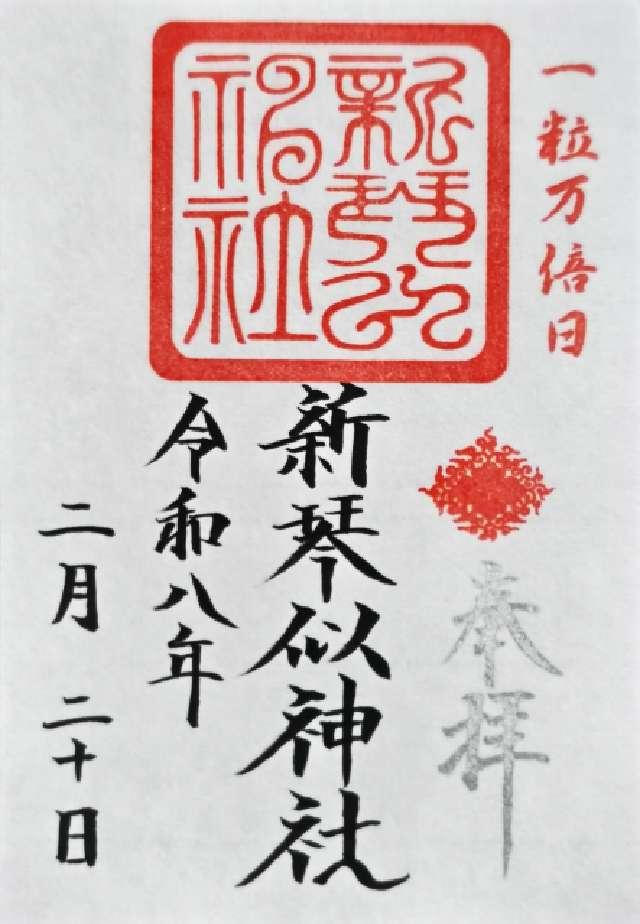 一粒万倍日
奉拝
新琴似神社
新琴似神社
令和八年
二月二十日